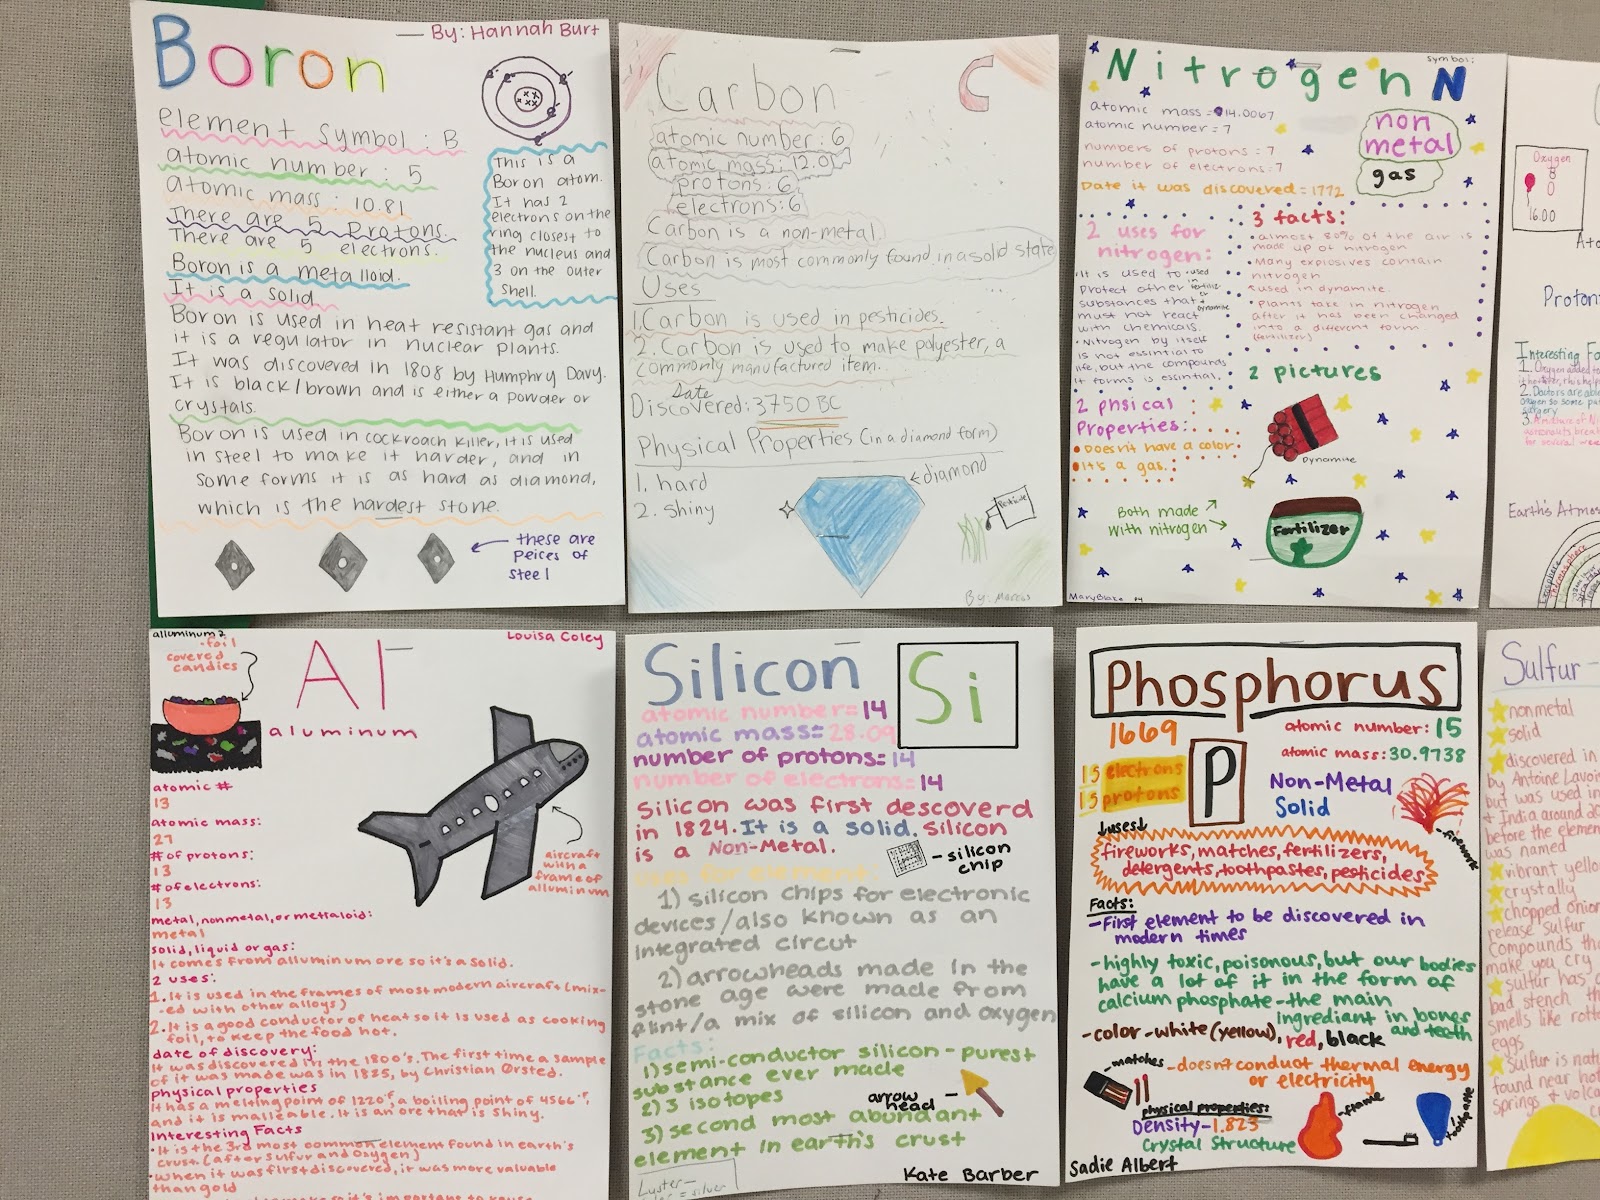 Boron
By: Hannah Burt
element symbol : B
atomic number : 5
atomic mass : 10.81
There are 5 Protons.
There are 5 electrons.
Boron is a metalloid.
It is a solid.
This is a
Boron atom.
It has 2
electrons on the
ring closest to
the nucleus and
3 on the outer
shell.
Boron is used in heat resistant gas and
it is a regulator in nuclear plants.
It was discovered in 1808 by Humphry Davy.
It is black/brown and is either a powder or
crystals.
Boron is used in cockroach killer, it is used
in steel to make it harder, and in
some forms it is as hard as diamond,
which is the hardest stone.
these are
peices of
steel
Carbon
C
atomic number: 6
atomic mass: 12.01
protons: 6
electrons: 6
Carbon is a non-metal
Carbon is most commonly found in a solid state
Uses
1. Carbon is used in pesticides.
2. Carbon is used to make polyester, a
commonly manufactured item.
Date
Discovered: 3750 BC
Physical Properties (in a diamond form)
1. hard
2. Shiny
diamond
Pesticide
By: Marcus
Nitrogen
symbol:
N
atomic mass = 14.0067
atomic number = 7
numbers of protons: 7
number of electrons: 7
Date it was discovered = 1772
non
metal
gas
2 uses for
nitrogen:
It is used to
Protect other
substances that
must not react
with chemicals.
used
in
fertilizer
or
dynamite
Nitrogen by itself
is not essintial to
life, but the compounds
it forms is essintial.
3 facts:
almost 80% of the air is
made up of nitrogen
Many explosives contain
nitrogen
used in dynamite.
Plants take in nitrogen
after it has been changed
into a different form.
(fertilizer)
2 phsical
Properties:
Doesn't have a color
It's a gas.
2 pictures
Dynamite
Both made
with nitrogen
Fertilizer
MaryBlake
Oxygen
8
O
16.00
Proton
Interesting Fa
Earth's Atmos
alluminum?
-foil
covered
candies
Al
Louisa Coley
aluminum
atomic #
13
atomic mass:
27
# of protons:
13
# of electrons:
13
metal, nonmetal, or metraloid:
metal
solid, liquid or gas:
It comes from alluminum ore so it's a solid.
2 uses:
1. It is used in the frames of most modern aircraft (mix-
ed with other alloys)
2. It is a good conductor of heat so it is used as cooking
foil, to keep the food hot.
date of discovery:
It was discovered in the 1800's. The first time a sample
of it was made was in 1825, by Christian Ørsted.
physical properties
It has a melting point of 1220°F, a boiling point of 4566°F,
and it is malleable. It is an ore that is shiny.
Interesting Facts
It is the 3rd most common element found in earth's
crust (after sulfur and oxygen)
when it was first discovered, it was more valuable
than gold
aircraft
with a
frame of
alluminum
Silicon
Si
atomic number= 14
atomic mass= 28.09
number of protons= 14
number of electrons= 14
Silicon was first descoverd
in 1824. It is a solid. Silicon
is a Non-Metal.
-silicon
chip
uses for element:
1) silicon chips for electronic
devices/also known as an
integrated circut
2) arrowheads made in the
stone age were made from
flint/a mix of silicon and oxygen
Facts:
1) semi-conductor silicon-purest
substance ever made
2) 3 isotopes
3) second most abundant
element in earth's crust
arrow
head
Luster-
silver
Kate Barber
Phosphorus
1669
15 electrons
15 protons
P
atomic number: 15
atomic mass: 30.9738
Non-Metal
Solid
-firework
↓uses↓
fireworks, matches, fertilizers,
detergents, toothpastes, pesticides
Facts:
-First element to be discovered in
modern times
-highly toxic, poisonous, but our bodies
have a lot of it in the form of
calcium phosphate-the main
ingrediant in bones
and teeth
-color-white (yellow), red, black
-matches
-doesn't conduct thermal energy
or electricity
physical properties:
Density-1.823
Crystal Structure
-flame
toothpaste
Sadie Albert
Sulfur-
nonmetal
solid
discovered in
by Antoine Lavois
but was used in
+ India around 20
before the elemen
was named
vibrant yello
crystally
chopped onion
release sulfur
compounds tha
make you cry
sulfur has a
bad stench th
smells like rott
eggs
Sulfur is nat
found near hot
springs + volca